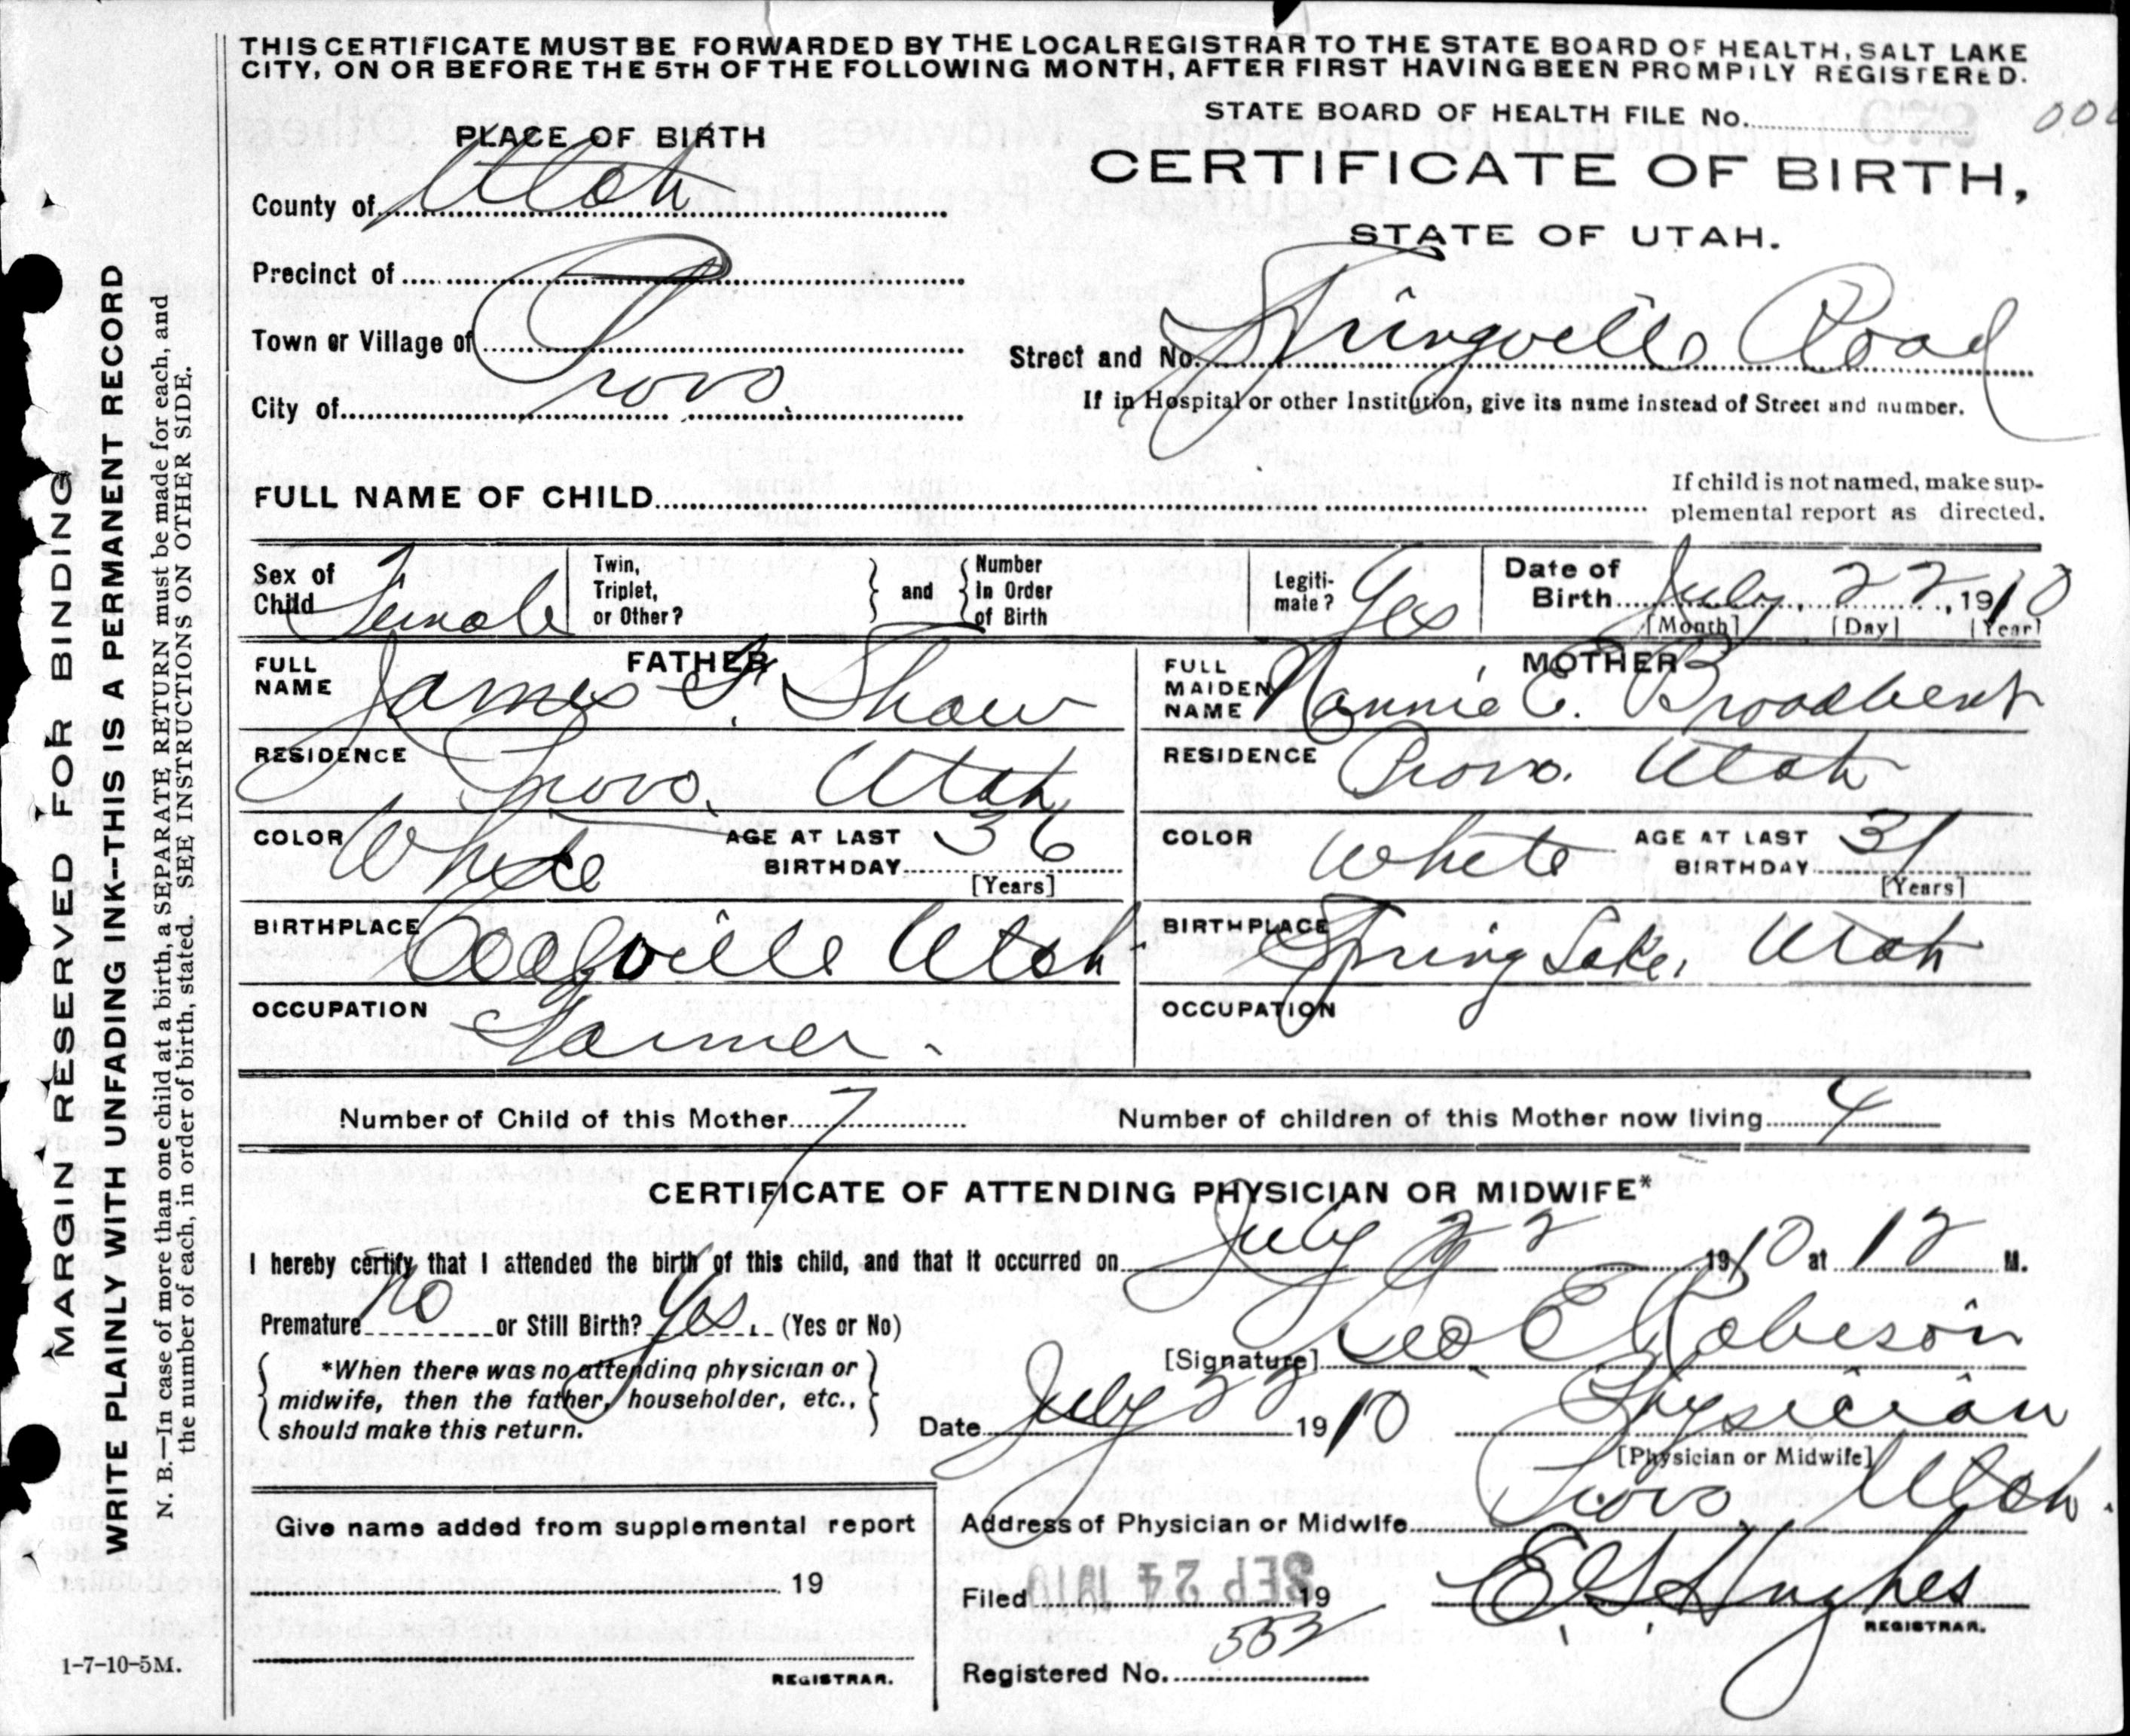 THIS CERTIFICATE MUST BE FORWARDED BY THE LOCAL REGISTRAR TO THE STATE BOARD OF HEALTH, SALT LAKE
CITY, ON OR BEFORE THE 5TH OF THE FOLLOWING MONTH, AFTER FIRST HAVING BEEN PROMPILY REGISTERED.
STATE BOARD OF HEALTH FILE No.
PLACE OF BIRTH
CERTIFICATE OF BIRTH,
STATE OF UTAH.
County of Utah
Precinct of
Town or Village of
City of Provo
Street and No. Springville Road
If in Hospital or other Institution, give its name instead of Street and number.
FULL NAME OF CHILD
If child is not named, make sup-
plemental report as directed.
Sex of Child Female
Twin, Triplet, or Other?
and
Number In Order of Birth
Legiti-mate? Yes
Date of Birth July 22, 1910
[Month] [Day] [Year]
FATHER
FULL NAME James F. Shaw
RESIDENCE Provo, Utah
COLOR White AGE AT LAST BIRTHDAY 36
[Years]
BIRTHPLACE Coalville Utah
OCCUPATION Farmer.
MOTHER
FULL MAIDEN NAME Nannie E. Broadbent
RESIDENCE Provo. Utah
COLOR White AGE AT LAST BIRTHDAY 31
[Years]
BIRTHPLACE Spring Lake, Utah
OCCUPATION
Number of Child of this Mother 7
Number of children of this Mother now living 4
CERTIFICATE OF ATTENDING PHYSICIAN OR MIDWIFE*
I hereby certify that I attended the birth of this child, and that it occurred on July 22 1910 at 12 M.
Premature No or Still Birth? Yes. (Yes or No)
*When there was no attending physician or
midwife, then the father, householder, etc.,
should make this return.
[Signature] Geo. E Robison
Date July 22 1910 Physician
[Physician or Midwife]
Address of Physician or Midwife Provo Utah.
Give name added from supplemental report
19
REGISTRAR.
Filed SEP 24 1910 19
E G Hughes
REGISTRAR.
Registered No. 553
1-7-10-5M.
MARGIN RESERVED FOR BINDING
WRITE PLAINLY WITH UNFADING INK--THIS IS A PERMANENT RECORD
N. B.—In case of more than one child at a birth, a SEPARATE RETURN must be made for each, and
the number of each, in order of birth, stated. SEE INSTRUCTIONS ON OTHER SIDE.